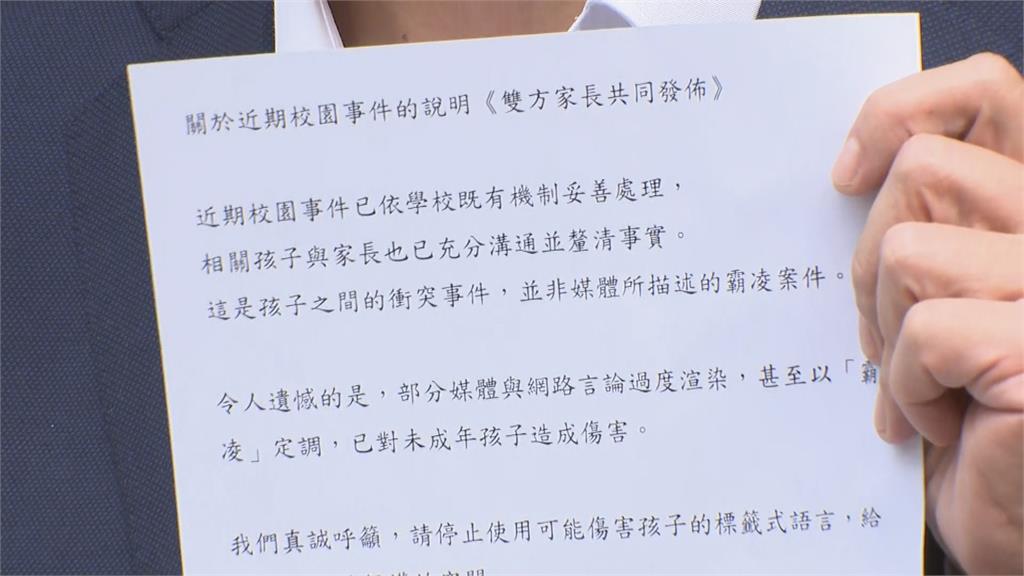 關於近期校園事件的說明《雙方家長共同發佈》
近期校園事件已依學校既有機制妥善處理，
相關孩子與家長也已充分溝通並釐清事實。
這是孩子之間的衝突事件，並非媒體所描述的霸凌案件。
令人遺憾的是，部分媒體與網路言論過度渲染，甚至以「霸
凌」定調，已對未成年孩子造成傷害。
我們真誠呼籲，請停止使用可能傷害孩子的標籤式語言，給